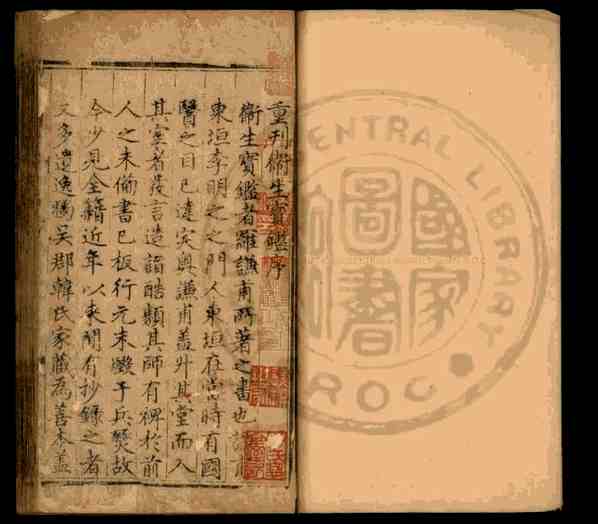 重刊衛生寶鑑序
衛生寶鑑者羅謙甫所著之書也
東垣李明之之門人東垣在當時有國
醫之目已達突奧謙甫盖升其堂而入
其室者發言造詣酷類其師有裨於前
人之未備書已板行元末燬于兵燹故
今少見全籍近年以來間有抄錄之者
又多遺逸獨吴郡韓氏家藏為善本盖
CENTRAL LIBRARY
ROC
國家圖書